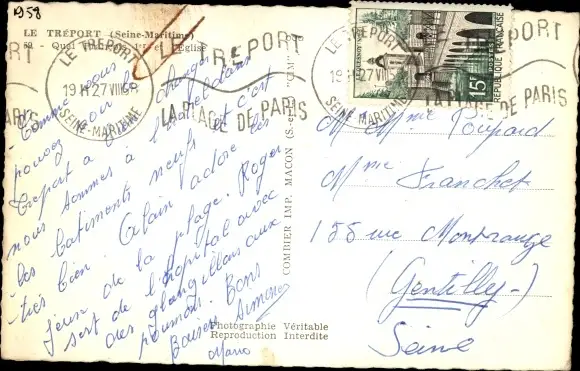 1958
LE TRÉPORT (Seine-Maritime)
Quai François 1er et l'Église
LE TREPORT
19H 27 VIII 58
SEINE-MARITIME
LE TREPORT
LA PLAGE DE PARIS
LE TREPORT
19H 27 VIII 58
SEINE-MARITIME
TREPORT
LA PLAGE DE PARIS
15F
REPUBLIQUE FRANÇAISE
Comme vous
pouvez voir le changer
Treport a
nous sommes à l'hotel dans
les batiments neufs et c'est
très bien. Alain adore les
jeux de la plage. Roger
sort de l'hopital avec
des ganglillons aux
poumons. Bons
Baisers Simone
Mario
COMBIER IMP. MACON (S.-et-L.) "CIM"
Photographie Véritable
Reproduction Interdite
M Mme Poupard
Mme Franchet
155 rue Montrouge
(Gentilly-)
Seine